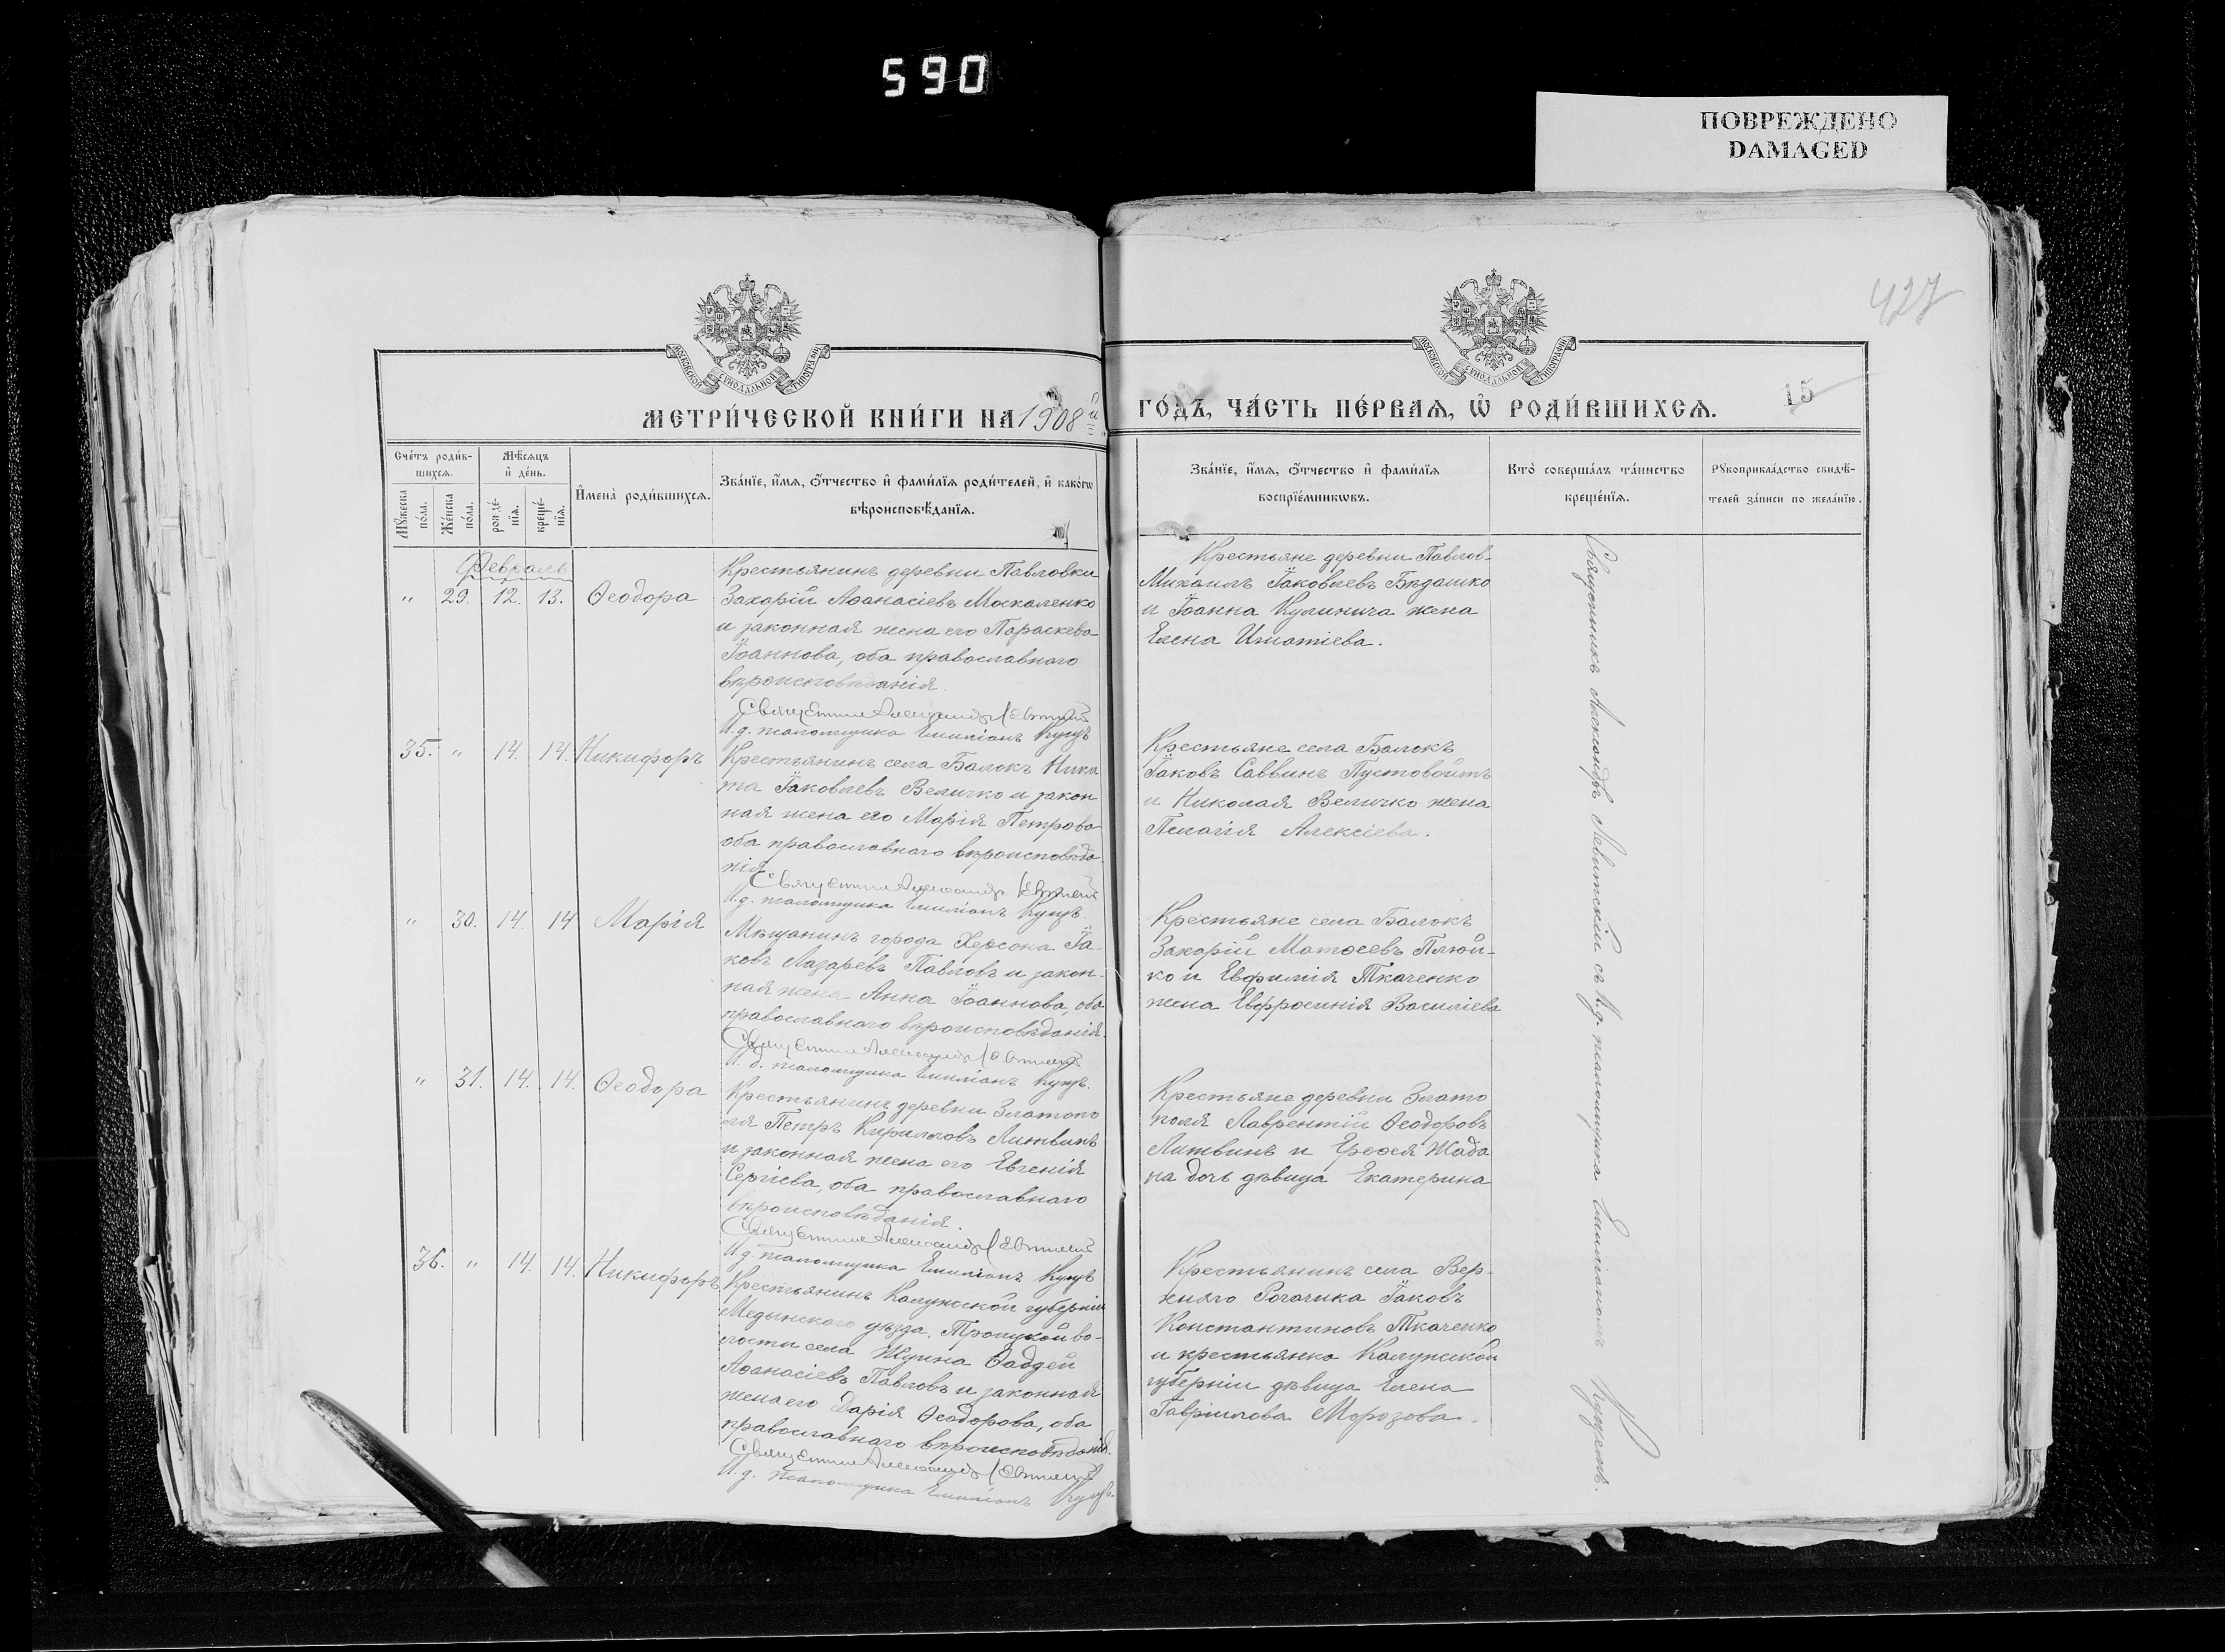 590
ПОВРЕЖДЕНО
DAMAGED
427
МОСКОВСКОЙ СѴНОДАЛЬНОЙ ТИПОГРАФІИ
МОСКОВСКОЙ СѴНОДАЛЬНОЙ ТИПОГРАФІИ
МЕТРИ́ЧЕСКОЙ КНИ́ГИ НА 1908й ГО́ДЪ, ЧА́СТЬ ПЕ́РВАѦ, Ѡ҆ РОДИ́ВШИХСѦ.
15
Сче́тъ роди́в-
шихсѧ.
Мѣ́сѧцъ
и҆ де́нь.
Мꙋ́жеска по́ла.
Же́нска по́ла.
рожде́-нїѧ.
креще́-нїѧ.
И҆мена̀ роди́вшихсѧ.
Зва́нїе, и҆́мѧ, ѻ҆́тчество и҆ фами́лїѧ роди́телей, и҆ како́гѡ
вѣроисповѣ́данїѧ.
Зва́нїе, и҆́мѧ, ѻ҆́тчество и҆ фами́лїѧ
воспрїе́мникѡвъ.
Кто̀ соверша́лъ та́инство
креще́нїѧ.
Рꙋкоприкла́дство свидѣ́-
телей за́писи по жела́нїю.
Февраль
" 29. 12. 13. Ѳеодора
Крестьянинъ деревни Павловки
Захарій Аѳанасіевъ Москаленко
и законная жена его Параскева
Іоаннова, оба православнаго
вѣроисповѣданія.
Священникъ Александръ Левитскій
И.д. псаломщика Емиліанъ Куцъ
Крестьяне деревни Павлов-
Михаилъ Іаковлевъ Бѣдашко
и Іоанна Кулинича жена
Елена Игнатіева.
35. " 14. 14. Никифоръ
Крестьянинъ села Балокъ Ники
та Іаковлевъ Величко и закон
ная жена его Марія Петрова
оба православнаго вѣроисповѣда-
нія
Священникъ Александръ Левитскій
И.д. псаломщика Емиліанъ Куцъ.
Крестьяне села Балокъ
Іаковъ Саввинъ Пустовойтъ
и Николая Величко жена
Пелагія Алексіева.
" 30. 14. 14 Марія
Мѣщанинъ города Херсона Іа-
ковъ Лазаревъ Павловъ и закон-
ная жена Анна Іоаннова, оба
православнаго вѣроисповѣданія.
Священникъ Александръ Левитскій
И.д. псаломщика Емиліанъ Куцъ.
Крестьяне села Балокъ
Захарій Матѳеевъ Плюй-
ко и Евфимія Ткаченко
жена Евфросинія Василіева
" 31. 14. 14. Ѳеодора
Крестьянинъ деревни Златопо
ля Петръ Кирилловъ Литвинъ
и законная жена его Евгенія
Сергіева, оба православнаго
вѣроисповѣданія.
Священникъ Александръ Левитскій
И.д. псаломщика Емиліанъ Куцъ
Крестьяне деревни Злато
поля Лаврентій Ѳеодоровъ
Литвинъ и Ероѳея Жада
на дочь дѣвица Екатерина
36. " 14. 14. Никифоръ
Крестьянинъ Калужской губерніи
Медынского уѣзда, Троицкой во-
лости села Щукина Ѳаддей
Аѳанасіевъ Павловъ и законная
жена его Дарія Ѳеодорова, оба
православнаго вѣроисповѣданія.
Священникъ Александръ Левитскій
И.д. псаломщика Емиліанъ Куцъ.
Крестьянинъ села Вер-
хняго Рогачика Іаковъ
Константиновъ Ткаченко
и крестьянка Калужской
губерніи дѣвица Елена
Гавріилова Морозова.
Священникъ Александръ Левитскій съ И.д. псаломщика Емиліаномъ Куцемъ.